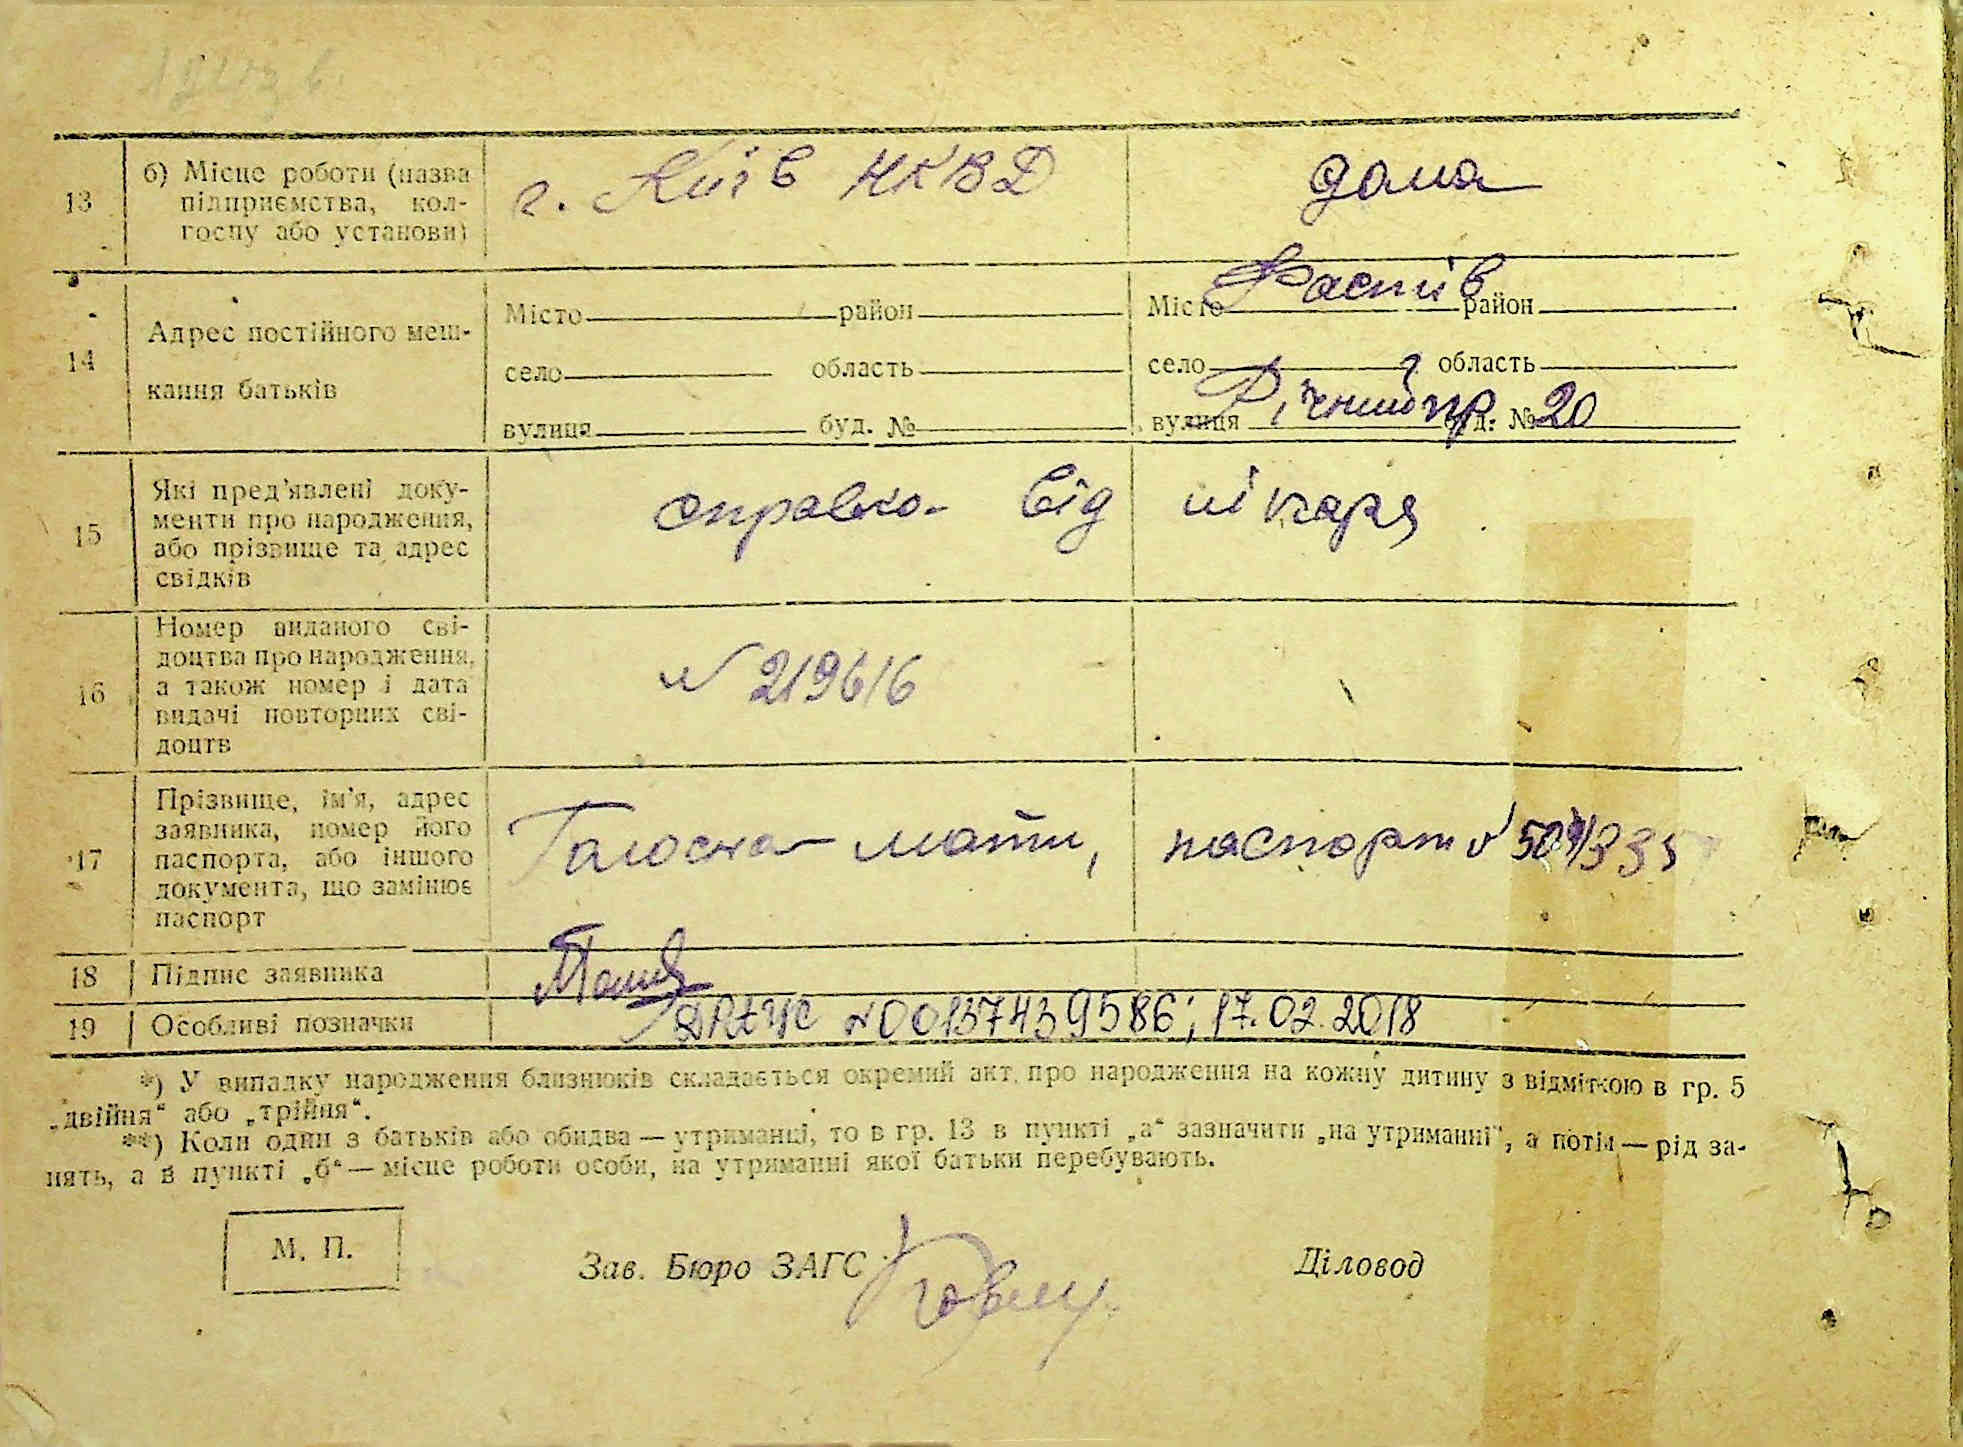 13
б) Місце роботи (назва
підприємства, кол-
госпу або установи)
г. Київ НКВД
дома
14
Адрес постійного меш-
кання батьків
Місто район
село область
вулиця буд. №
Місто Фастів район
село область
вулиця Річний пр буд. № 20
15
Які пред'явлені доку-
менти про народження,
або прізвище та адрес
свідків
справка від лікаря
16
Номер виданого сві-
доцтва про народження,
а також номер і дата
видачі повторних сві-
доцтв
N 219616
17
Прізвище, ім'я, адрес
заявника, номер його
паспорта, або іншого
документа, що замінює
паспорт
мати, паспорт N
18
Підпис заявника
19
Особливі позначки
N00137439586; 17.02.2018
*) У випадку народження близнюків складається окремий акт про народження на кожну дитину з відміткою в гр. 5
„двійня“ або „трійня“.
**) Коли один з батьків або обидва — утриманці, то в гр. 13 в пункті „а“ зазначити „на утриманні“, а потім — рід за-
нять, а в пункті „б“ — місце роботи особи, на утриманні якої батьки перебувають.
М. П.
Зав. Бюро ЗАГС
Діловод